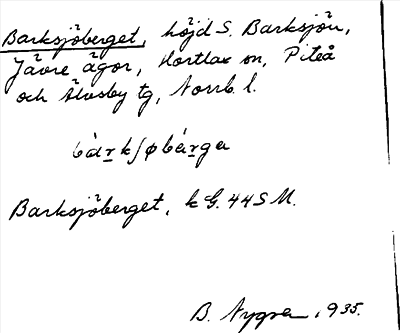 Barksjöberget, höjd S. Barksjön,
Jävre ägor, Hortlax sn, Piteå
och Älvsby tg, Norrb. l.
bárkʃøbárga
Barksjöberget, k G. 44 S M.
B. Nygren, 1935.